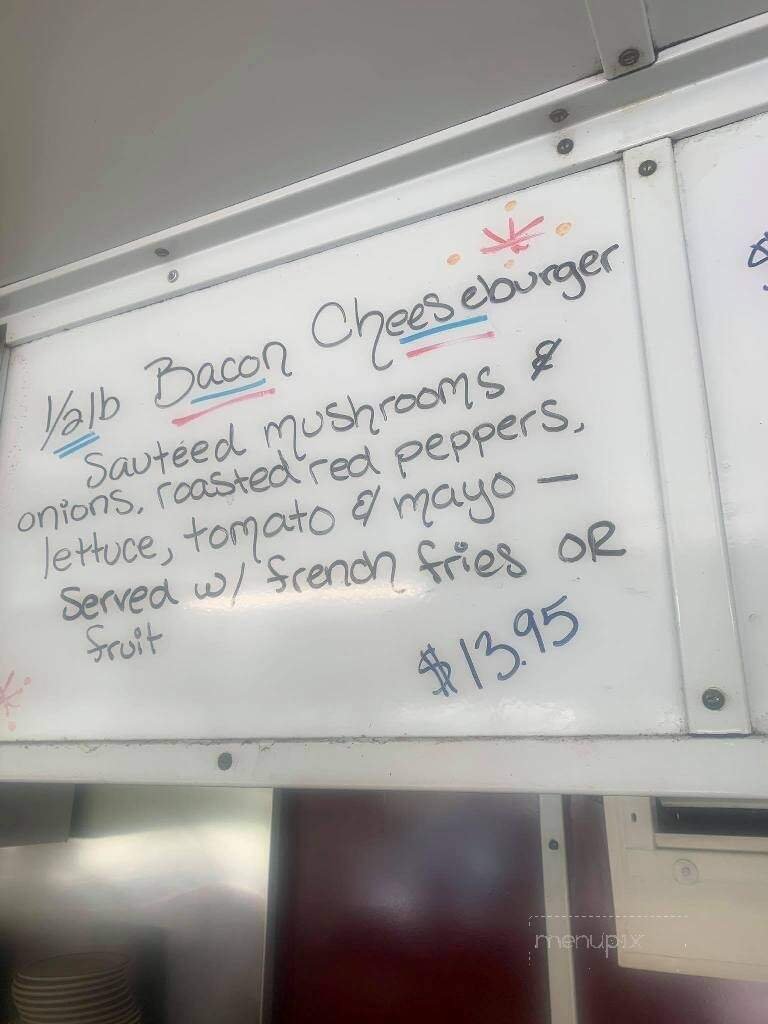 1/2lb Bacon Cheeseburger
Sautéed mushrooms &
onions, roasted red peppers,
lettuce, tomato & mayo —
Served w/ french fries OR
fruit
$13.95
menupix